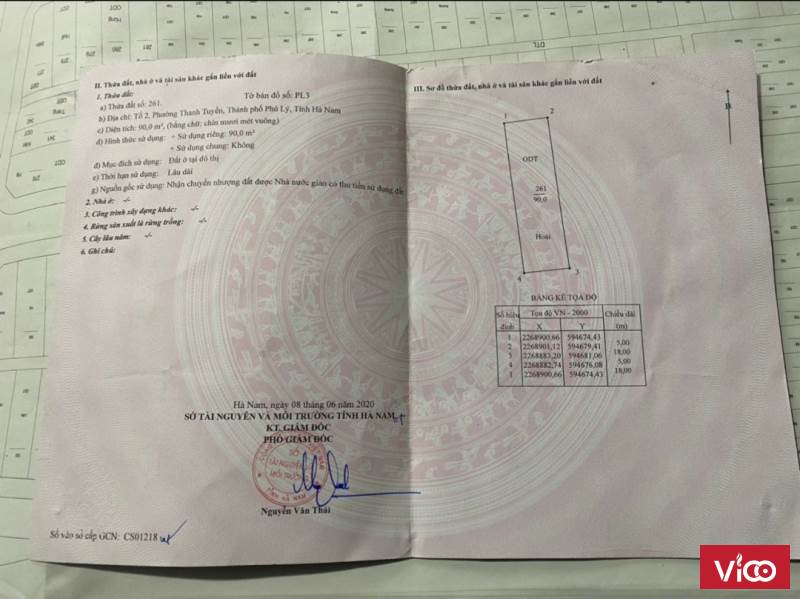 II. Thửa đất, nhà ở và tài sản khác gắn liền với đất
1. Thửa đất:
a) Thửa đất số: 261. Tờ bản đồ số: PL3
b) Địa chỉ: Tổ 2, Phường Thanh Tuyền, Thành phố Phủ Lý, Tỉnh Hà Nam
c) Diện tích: 90,0 m², (bằng chữ: chín mươi mét vuông)
d) Hình thức sử dụng: + Sử dụng riêng: 90,0 m²
+ Sử dụng chung: Không
đ) Mục đích sử dụng: Đất ở tại đô thị
e) Thời hạn sử dụng: Lâu dài
g) Nguồn gốc sử dụng: Nhận chuyển nhượng đất được Nhà nước giao có thu tiền sử dụng đất
2. Nhà ở: -/-
3. Công trình xây dựng khác: -/-
4. Rừng sản xuất là rừng trồng: -/-
5. Cây lâu năm: -/-
6. Ghi chú:
Hà Nam, ngày 08 tháng 06 năm 2020
SỞ TÀI NGUYÊN VÀ MÔI TRƯỜNG TỈNH HÀ NAM
KT. GIÁM ĐỐC
PHÓ GIÁM ĐỐC
SỞ
TÀI NGUYÊN
MÔI TRƯỜNG
TỈNH HÀ NAM
Nguyễn Văn Thái
Số vào sổ cấp GCN: CS01218
III. Sơ đồ thửa đất, nhà ở và tài sản khác gắn liền với đất
B
1 2
ODT
261
90,0
Hoài
4 3
BẢNG KÊ TỌA ĐỘ
Số hiệu đỉnh Tọa độ VN - 2000 Chiều dài (m)
X Y
1 2268900,66 594674,43
5,00
2 2268901,12 594679,41
18,00
3 2268883,20 594681,06
5,00
4 2268882,74 594676,08
18,00
1 2268900,66 594674,43
ViCO